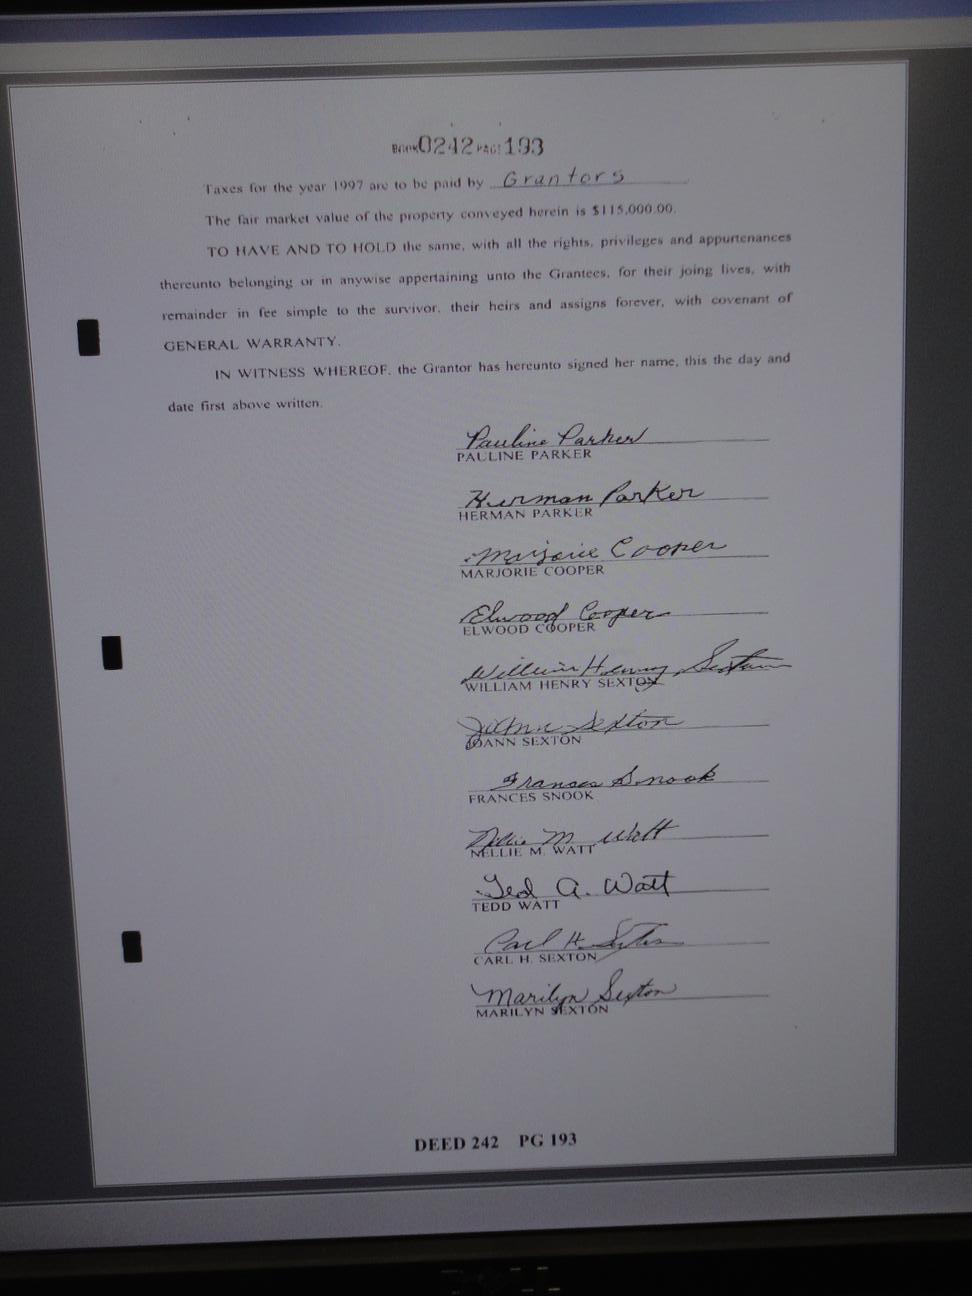 BOOK 0242 PAGE 193
Taxes for the year 1997 are to be paid by Grantors
The fair market value of the property conveyed herein is $115,000.00.
TO HAVE AND TO HOLD the same, with all the rights, privileges and appurtenances
thereunto belonging or in anywise appertaining unto the Grantees, for their joing lives, with
remainder in fee simple to the survivor, their heirs and assigns forever, with covenant of
GENERAL WARRANTY.
IN WITNESS WHEREOF, the Grantor has hereunto signed her name, this the day and
date first above written.
Pauline Parker
PAULINE PARKER
Herman Parker
HERMAN PARKER
Marjorie Cooper
MARJORIE COOPER
Elwood Cooper
ELWOOD COOPER
William Henry Sexton
WILLIAM HENRY SEXTON
JoAnn Sexton
JOANN SEXTON
Frances Snook
FRANCES SNOOK
Nellie M. Watt
NELLIE M. WATT
Ted A. Watt
TEDD WATT
Carl H. Sexton
CARL H. SEXTON
Marilyn Sexton
MARILYN SEXTON
DEED 242 PG 193